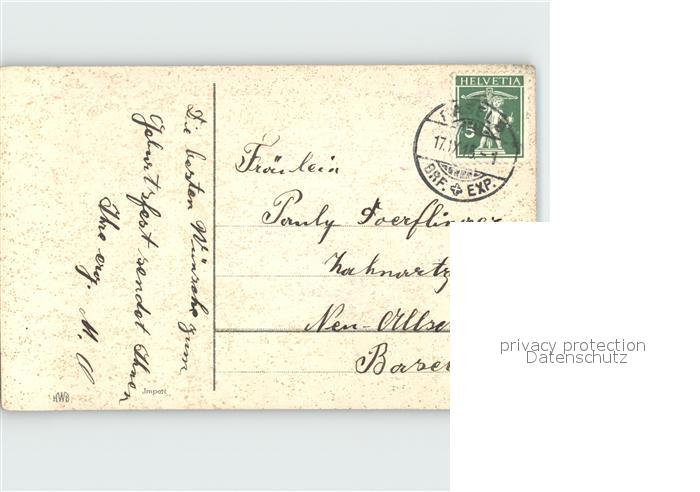 Die besten Wünsche zum
Geburtsfest sendet Ihnen
Ihre erg. M. O
HWB
Import
HELVETIA
5
17.IX
BRF. EXP.
Fräulein
Pauly Doerflinger
Zahnartz
Neu-Allsc
Basel
privacy protection
Datenschutz